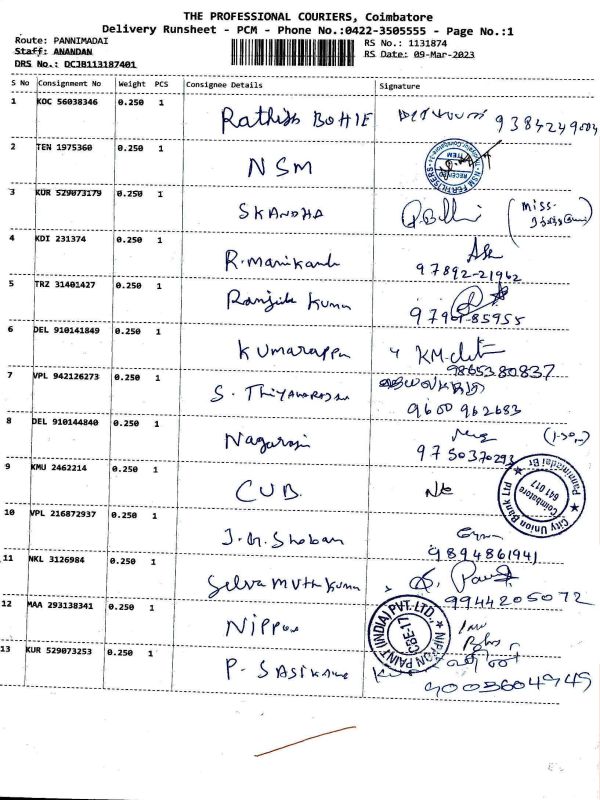 THE PROFESSIONAL COURIERS, Coimbatore
Delivery Runsheet - PCM - Phone No.:0422-3505555 - Page No.:1
Route: PANNIMADAI
RS No.: 1131874
Staff: ANANDAN
RS Date: 09-Mar-2023
DRS No.: DCJB113187401
S No Consignment No Weight PCS Consignee Details Signature
1 KOC 56038346 0.250 1 Rathish BOHIE 9384249004
2 TEN 1975360 0.250 1 NSM
NSM FERTILISERS RECEIVED ITEM
3 KUR 529073179 0.250 1 SKANDHA Miss.
4 KDI 231374 0.250 1 R. Manikand
97892-21962
5 TRZ 31401427 0.250 1 Ranjith Kumar
97901-85955
6 DEL 910141849 0.250 1 Kumarappa
9865380837
7 VPL 942126273 0.250 1 S. THIYAGARAJAN
9600962683
8 DEL 910144840 0.250 1 Nagaraj
9750370293
9 KMU 2462214 0.250 1 CUB
City Union Bank Ltd Pannimadai Br Coimbatore 641 017
10 VPL 216872937 0.250 1 J.M. Shoban
9894861941
11 NKL 3126984 0.250 1 Selva Muthu Kumar
9944205072
12 MAA 293138341 0.250 1 Nippon
NIPPON PAINT (INDIA) PVT. LTD., CBE-17
13 KUR 529073253 0.250 1 P. SASIKALA
9003604949